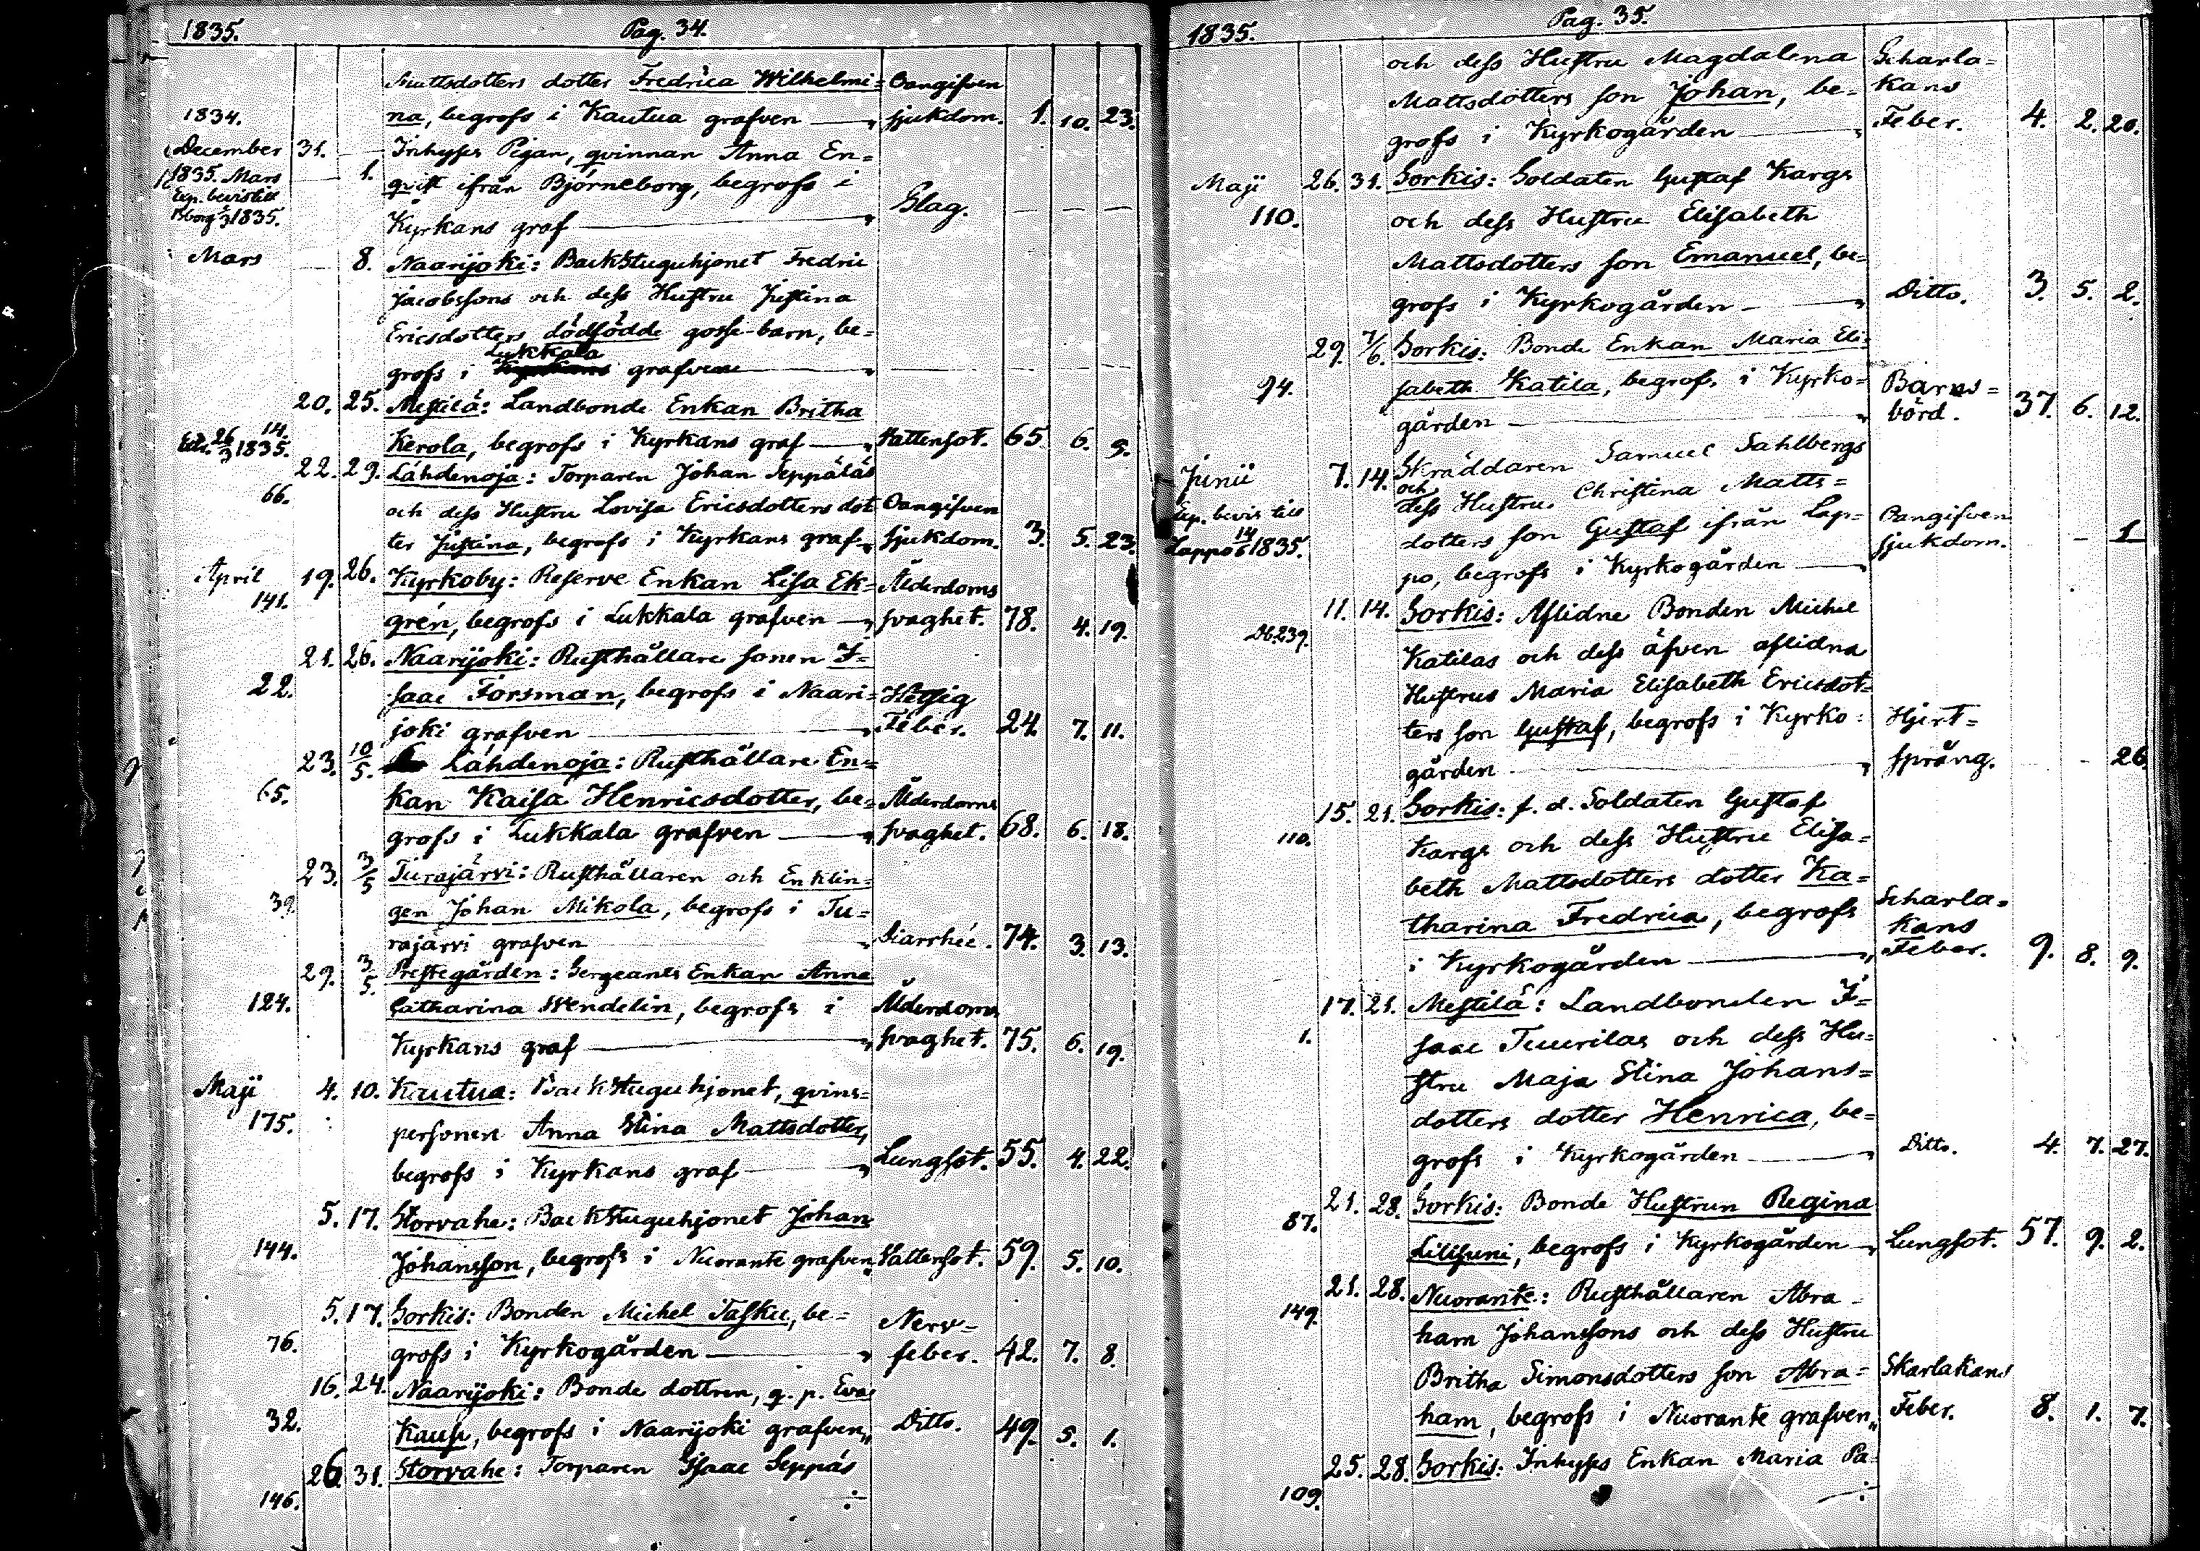 1835. Pag. 34.
Mattsdotters dotter Fredrica Wilhelmi= Oangifven
1834. na, begrofs i Kautua grafven sjukdom. 1. 10. 23.
December 31. Inhyses Pigan, qvinnan Anna En=
1835. Mars 1. qvist ifrån Björneborg, begrofs i
1835. Kyrkans graf Slag.
Mars 8. Naarijoki: Backstuguhjonet Fredric
Jacobssons och dess Hustru Justina
Ericsdotters dödfödde gosse-barn, be=
Lukkala
grofs i grafven
20. 25. Mestilä: Landbonde Enkan Britha
14.
26/3 1835. Kerola, begrofs i Kyrkans graf Vattensot. 65. 6. 5.
22. 29. Lähdenoja: Torparen Johan Seppäläs
66. och dess Hustru Lovisa Ericsdotters dot Oangifven
ter Justina, begrofs i Kyrkans graf sjukdom. 3. 5. 23.
April 19. 26. Kyrkoby: Reserve Enkan Lisa Ek= Ålderdoms
141. grén, begrofs i Lukkala grafven svaghet. 78. 4. 19.
21. 26. Naarijoki: Rusthållare sonen I=
22. saac Forsman, begrofs i Naari= Hetsig
joki grafven Feber. 24. 7. 11.
23. 10/5. Lähdenoja: Rusthållare En=
65. kan Kaisa Henricsdotter, be= Ålderdoms
grofs i Lukkala grafven svaghet. 68. 6. 18.
23. 3/5 Turajärvi: Rusthållaren och Enklin=
39. gen Johan Mikola, begrofs i Tu=
rajärvi grafven Diarrhée. 74. 3. 13.
29. 3/5. Prestegården: Sergeants Enkan Anna
124. Catharina Wendelin, begrofs i Ålderdoms
Kyrkans graf svaghet. 75. 6. 19.
Maji 4. 10. Kautua: Backstuguhjonet, qvins=
175. personen Anna Stina Mattsdotter,
begrofs i Kyrkans graf Lungsot. 55. 4. 22.
5. 17. Storvahe: Backstuguhjonet Johan
144. Johansson, begrofs i Nuorante grafven Vattensot. 59. 5. 10.
5. 17. Sorkis: Bonden Michel Tasku, be= Nerv=
76. grofs i Kyrkogården feber. 42. 7. 8.
16. 24. Naarijoki: Bonde dottren, q. p. Eva
32. Kaupi, begrofs i Naarijoki grafven Ditto. 49. 5. 1.
26. 31. Storvahe: Torparen Isaac Seppäs
146.
1835. Pag. 35.
och dess Hustru Magdalena Scharla=
Mattsdotters son Johan, be= kans
grofs i Kyrkogården Feber. 4. 2. 20.
Maji 26. 31. Sorkis: Soldaten Gustaf Kargs
110. och dess Hustru Elisabeth
Mattsdotters son Emanuel, be=
grofs i Kyrkogården Ditto. 3. 5. 2.
29. 7/6. Sorkis: Bonde Enkan Maria Eli=
94. sabeth Katila, begrofs i Kyrko= Barns=
gården börd. 37. 6. 12.
Junii 7. 14. Skräddaren Samuel Sahlbergs
och
dess Hustru Christina Matts=
bevis till dotters son Gustaf ifrån Lap= Oangifven
Lappo 14/6 1835. po, begrofs i Kyrkogården sjukdom. 1
11. 14. Sorkis: Aflidne Bonden Michel
239. Katilas och dess äfven aflidna
Hustrus Maria Elisabeth Ericsdot=
ters son Gustaf, begrofs i Kyrko= Hjert=
gården språng. 26.
15. 21. Sorkis: f. d. Soldaten Gustaf
110. Kargs och dess Hustru Elisa=
beth Mattsdotters dotter Ka= Scharla=
tharina Fredrica, begrofs kans
i Kyrkogården Feber. 9. 8. 9.
17. 21. Mestilä: Landbonden I=
1. saac Tuurilas och dess Hu=
stru Maja Stina Johans=
dotters dotter Henrica, be=
grofs i Kyrkogården Ditto. 4. 7. 27.
21. 28. Sorkis: Bonde Hustrun Regina
87. Lillsuni, begrofs i Kyrkogården Lungsot. 57. 9. 2.
21. 28. Nuorante: Rusthållaren Abra=
149. ham Johanssons och dess Hustru
Britha Simonsdotters son Abra= Skarlakans
ham, begrofs i Nuorante grafven Feber. 8. 1. 7.
25. 28. Sorkis: Inhyses Enkan Maria Pa=
109.